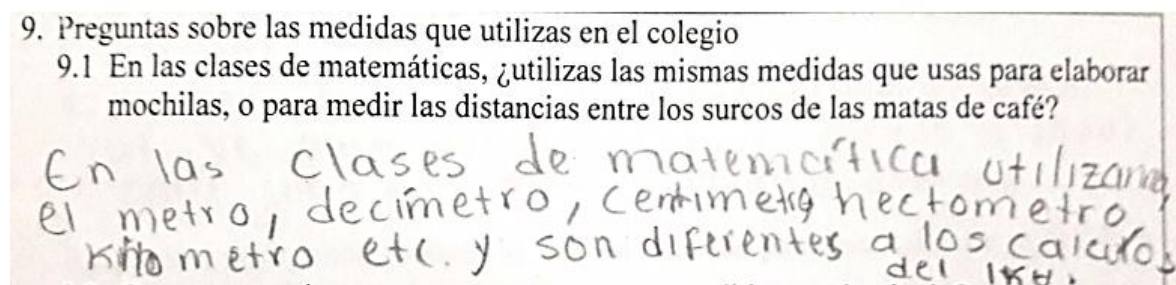 9. Preguntas sobre las medidas que utilizas en el colegio
9.1 En las clases de matemáticas, ¿utilizas las mismas medidas que usas para elaborar
mochilas, o para medir las distancias entre los surcos de las matas de café?
En las clases de matemática utilizamos
el metro, decímetro, centimetro hectometro,
kilometro etc. y son diferentes a los calculos
del